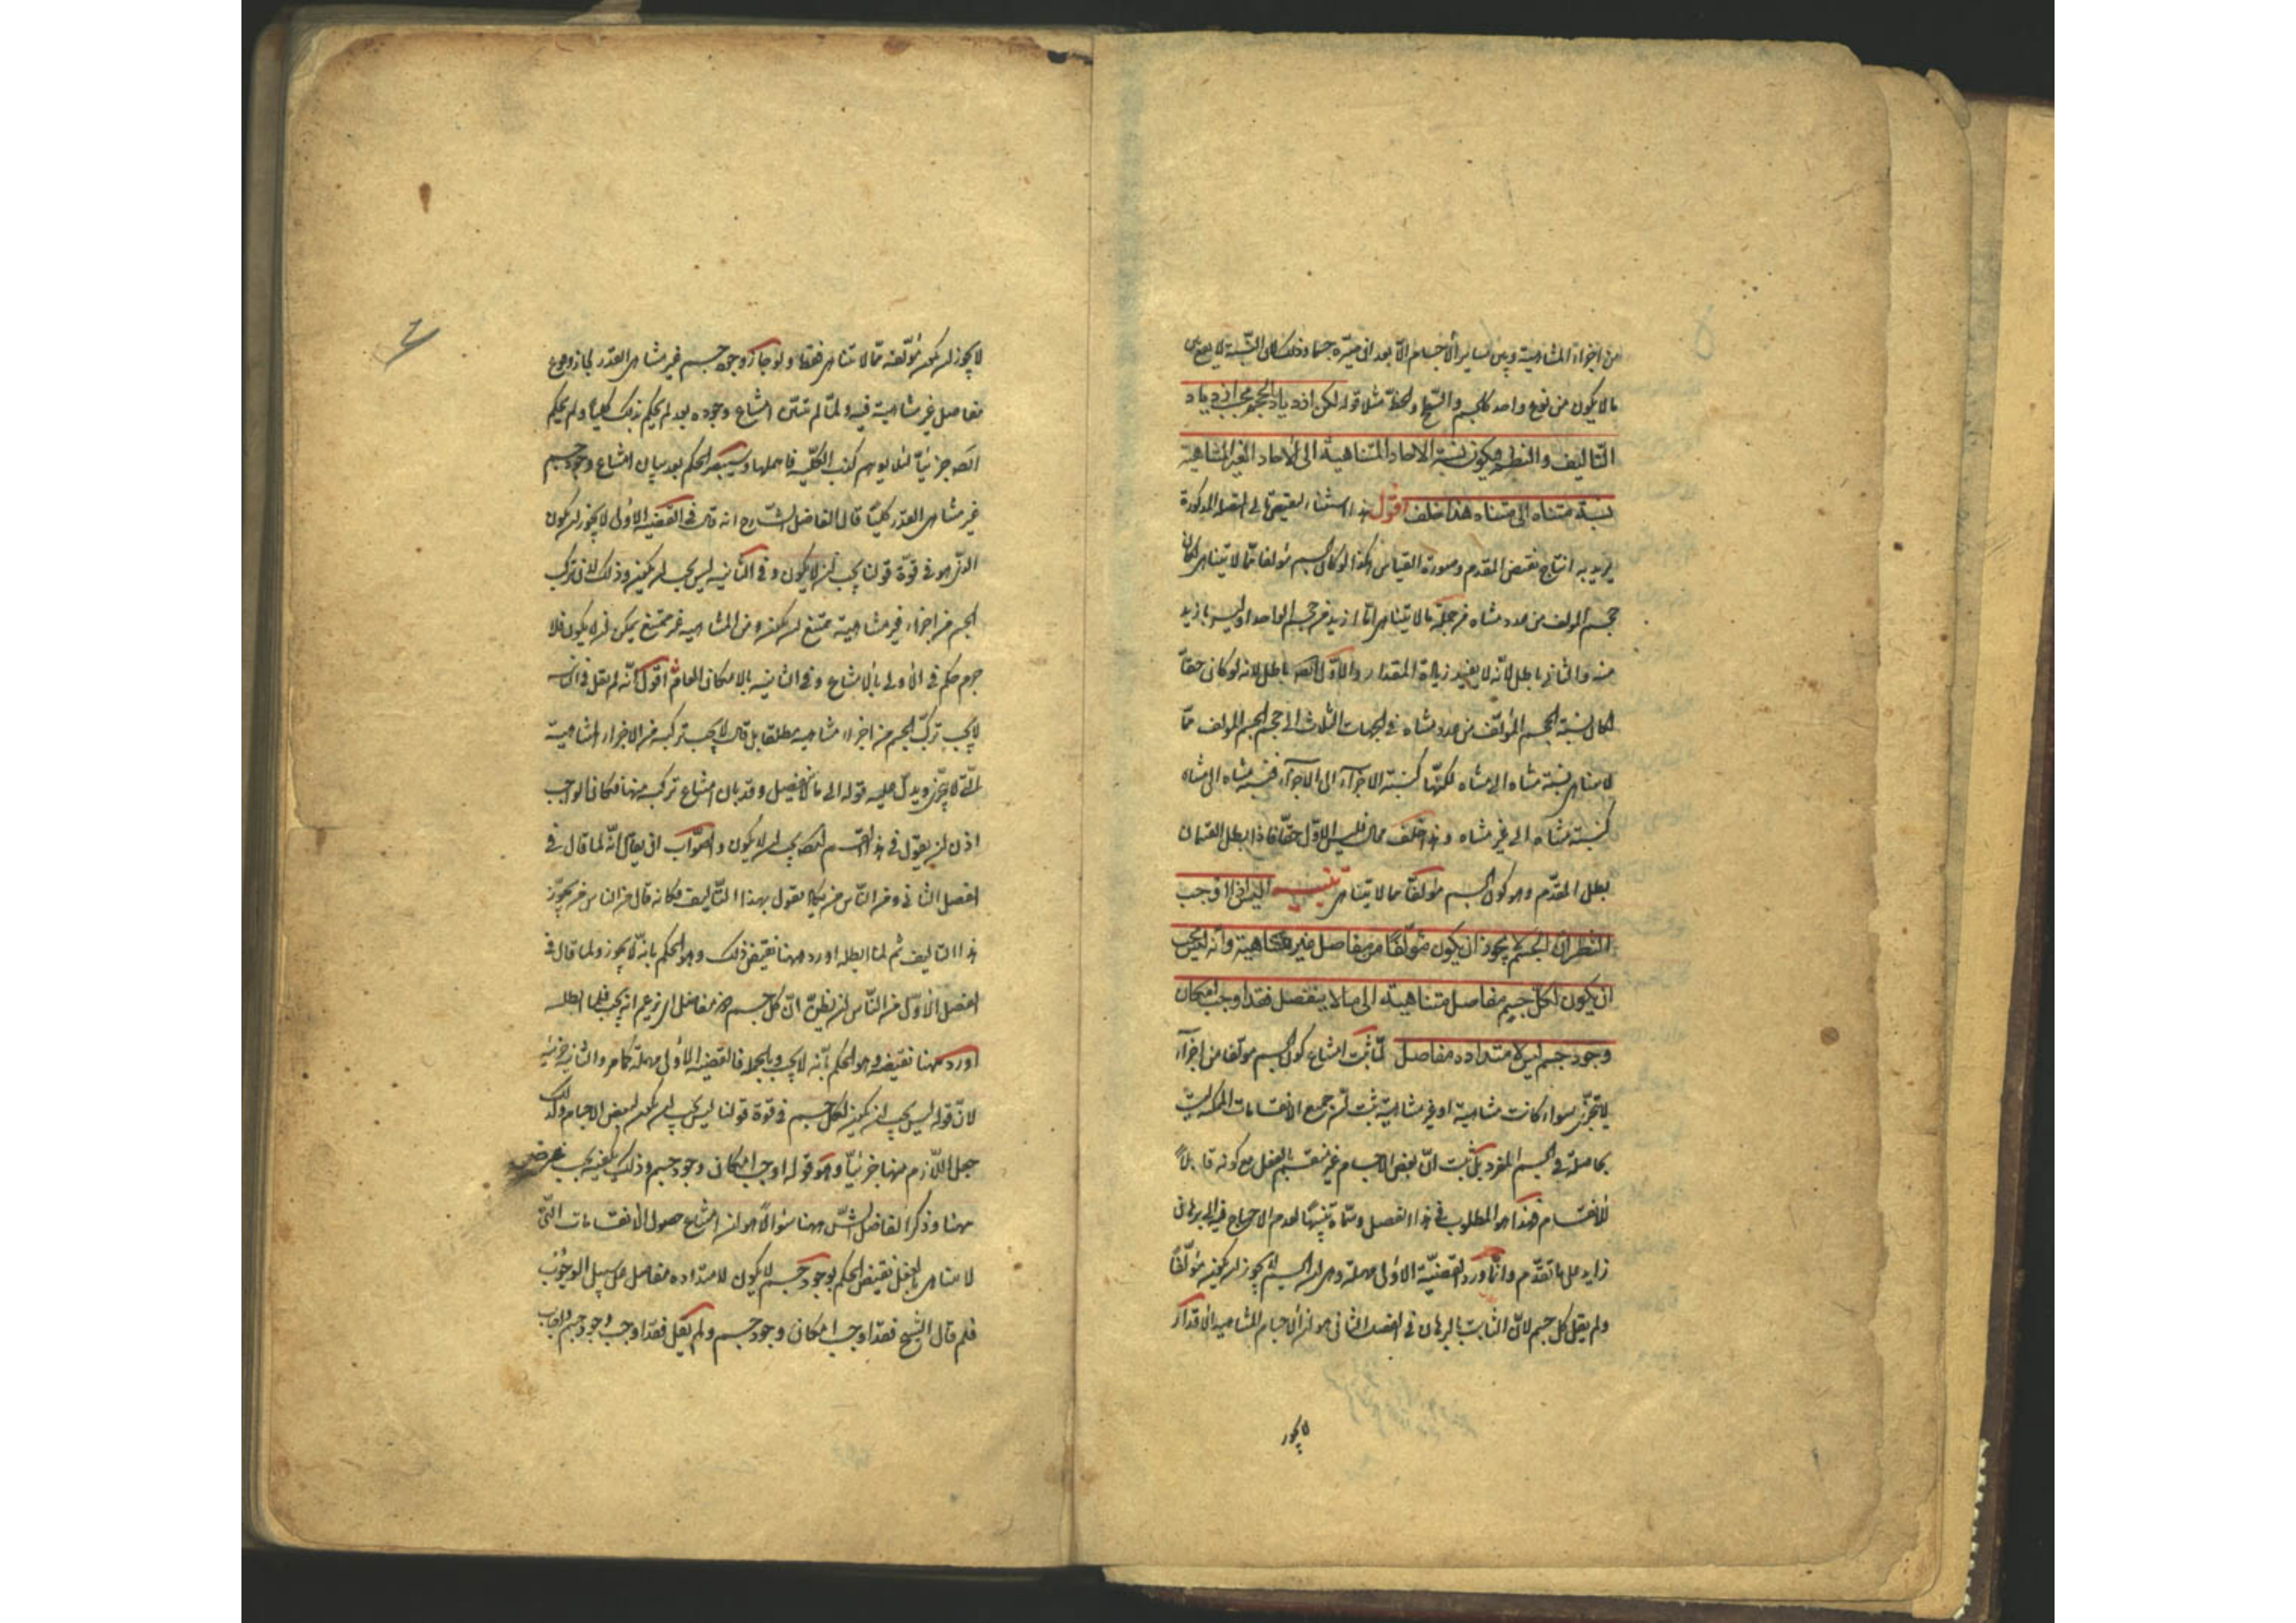 من اجزاء المتناهية وبين سائر الاجسام الا بعد ان صيره جسما وذلك لان النسبة لا يقع بين
ما لا يكون من نوع واحد كالجسم والسطح والخط مثلا قوله لكن ازدياد الحجم بحسب ازدياد
التاليف والنظم فيكون نسبة الاحاد المتناهية الى الاحاد الغير المتناهية
نسبة متناه الى متناه هذا خلف اقول هذا استثناء لنقيض تالى المتصلة المذكورة
يريد به انتاج نقيض المقدم وصورة القياس هكذا لو كان الجسم مؤلفا مما لا يتناهى لكان
حجم المؤلف من عدد متناه من جملة ما لا يتناهى اما ازيد من حجم الواحد او ليس بازيد
منه والثانى باطل لانه لا يفيد زيادة المقدار والاول ايضه باطل لانه لو كان حقا
لكان نسبة الحجم المؤلف من عدد متناه فى الجهات الثلاث الى حجم الجسم المؤلف مما
لا يتناهى نسبة متناه الى متناه لكنها كنسبة الاجزاء الى الاجزاء فنسبة متناه الى متناه
كنسبة متناه الى غير متناه وهذا خلف محال فليس الاول حقا فاذا بطل القسمان
بطل المقدم وهو كون الجسم مؤلفا مما لا يتناهى تنبيه اليس اذا اوجب
النظر ان الجسم لا يجوز ان يكون مؤلفا من مفاصل غير متناهية وانه ليس يجب
ان يكون لكل جسم مفاصل متناهية الى ما لا ينفصل فقد اوجب امكان
وجود جسم ليس لامتداده مفاصل لما ثبت امتناع كون الجسم مؤلفا من اجزاء
لا تتجزى سواء كانت متناهية او غير متناهية ثبت ان جميع الانقسامات الممكنة ليست
بحاصلة فى الجسم المفرد بل ثبت ان بعض الاجسام غير منقسم بالفعل مع كونه قابلا
للانقسام فهذا هو المطلوب فى هذا الفصل وسماه تنبيها لعدم الاحتياج فيه الى برهان
زايد على ما تقدم وانما اورد القضية الاولى مهملة وهى ان الجسم لا يجوز ان يكون مؤلفا
ولم يقل كل جسم لان الثابت بالبرهان فى الفصل الثانى هو ان الاجسام المتناهية الاقدار
لا يجوز
لا يجوز ان يكون مؤلفة مما لا تتناهى فقط ولو جاز وجود جسم غير متناهى القدر لجاز وقوع
مفاصل غير متناهية فيه ولما لم يتبين امتناع وجوده بعد لم يحكم بذلك كليا ولم يحكم
ايضه جزئيا لئلا يوهم كذب الكلية فاهملها وسيصير الحكم بعد بيان امتناع وجود جسم
غير متناهى القدر كليا قال الفاضل الشارح انه قال فى القضية الاولى لا يجوز ان يكون
الذى هو فى قوة قولنا يجب ان لا يكون وفى الثانية ليس يجب ان يكون وذلك لان تركب
الجسم من اجزاء غير متناهية ممتنع ان يكون ومن المتناهية غير ممتنع يمكن ان لا يكون فلا
جرم حكم فى الاولى بالامتناع وفى الثانية بالامكان العام اقول انه لم يقل فى الثانية
لا يجب تركب الجسم من اجزاء متناهية مطلقا بل قال لا يجب تركبه من الاجزاء المتناهية
التى لا تتجزى ويدل عليه قوله الى ما لا ينفصل وقد بان امتناع تركبه منها فكان الواجب
اذن ان يقول فى هذا القسم ايضه يجب ان لا يكون والصواب ان يقال انه لما قال فى
الفصل الثانى ومن الناس من يكاد يقول بهذا التاليف فكانه قال من الناس من يجوز
هذا التاليف ثم لما ابطله اورد ههنا نقيض ذلك وهو الحكم بانه لا يجوز ولما قال فى
الفصل الاول من الناس من يظن ان كل جسم ذو مفاصل اى زعم انه يجب فلما ابطله
اورد ههنا نقيضه وهو الحكم بانه لا يجب وبالجملة فالقضية الاولى مهملة كما مر والثانية جزئية
لان قوله ليس يجب ان يكون لكل جسم فى قوة قولنا ليس يجب ان يكون لبعض الاجسام ولذلك
جعل اللازم منها جزئيا وهو قوله اوجب امكان وجود جسم وذلك يكفيه بحسب غرضه
ههنا وذكر الفاضل الشارح ههنا سؤالا هو ان امتناع حصول الانقسامات التى
لا تتناهى بالفعل نقيض الحكم بوجود جسم لا يكون لامتداده مفاصل على سبيل الوجوب
فلم قال الشيخ فقد اوجب امكان وجود جسم ولم يقل فقد اوجب وجود جسم واجاب